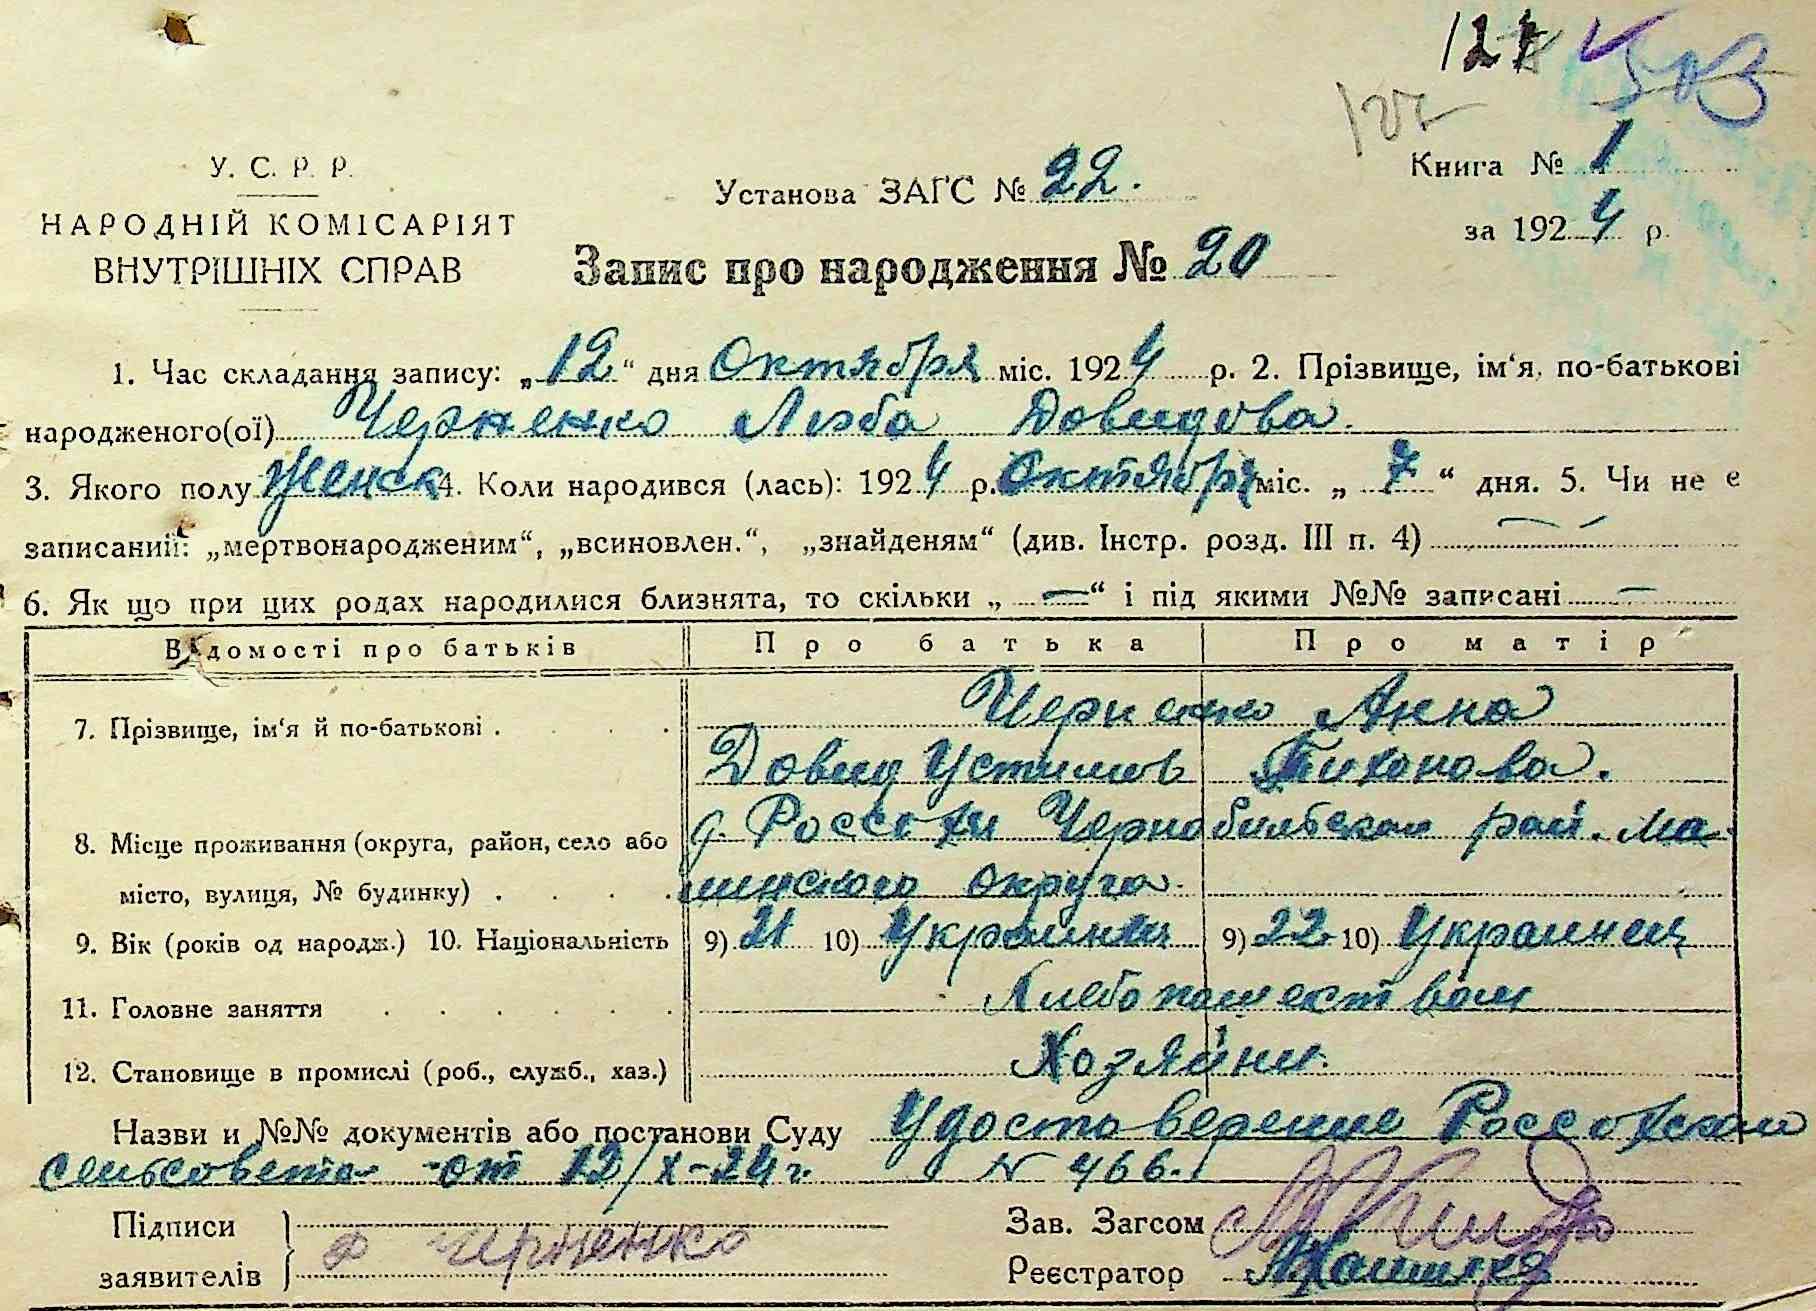 127 503
122
У. С. Р. Р.
НАРОДНІЙ КОМІСАРІЯТ
ВНУТРІШНІХ СПРАВ
Установа ЗАГС № 22.
Запис про народження № 20
Книга № 1
за 1924 р.
1. Час складання запису: „12“ дня Октября міс. 1924 р. 2. Прізвище, ім‘я, по-батькові
народженого(ої) Черненко Люба Довидова.
3. Якого полу женск 4. Коли народився (лась): 1924 р. Октября міс. „ 7 “ дня. 5. Чи не є
записаний: „мертвонародженим“, „всиновлен.“, „знайденям“ (див. Інстр. розд. III п. 4) —
6. Як що при цих родах народилися близнята, то скільки „ — “ і під якими №№ записані —
Відомості про батьків Про батька Про матір
7. Прізвище, ім‘я й по-батькові . Черненко Анна
Довид Устимов Тихонова.
8. Місце проживання (округа, район, село або д. Россохи Чернобильскаи рай. Ма-
місто, вулиця, № будинку) . линского округа.
9. Вік (років од народж.) 10. Національність 9) 21 10) Украинец 9) 22 10) Украинец
11. Головне заняття Хлебопашеством
12. Становище в промислі (роб., служб., хаз.) Хозяини.
Назви и №№ документів або постанови Суду Удостоверение Россохскаи
сельсовета от 12/X-24 г. N 466.
Підписи
заявителів
Д Черненко
Зав. Загсом
Реєстратор